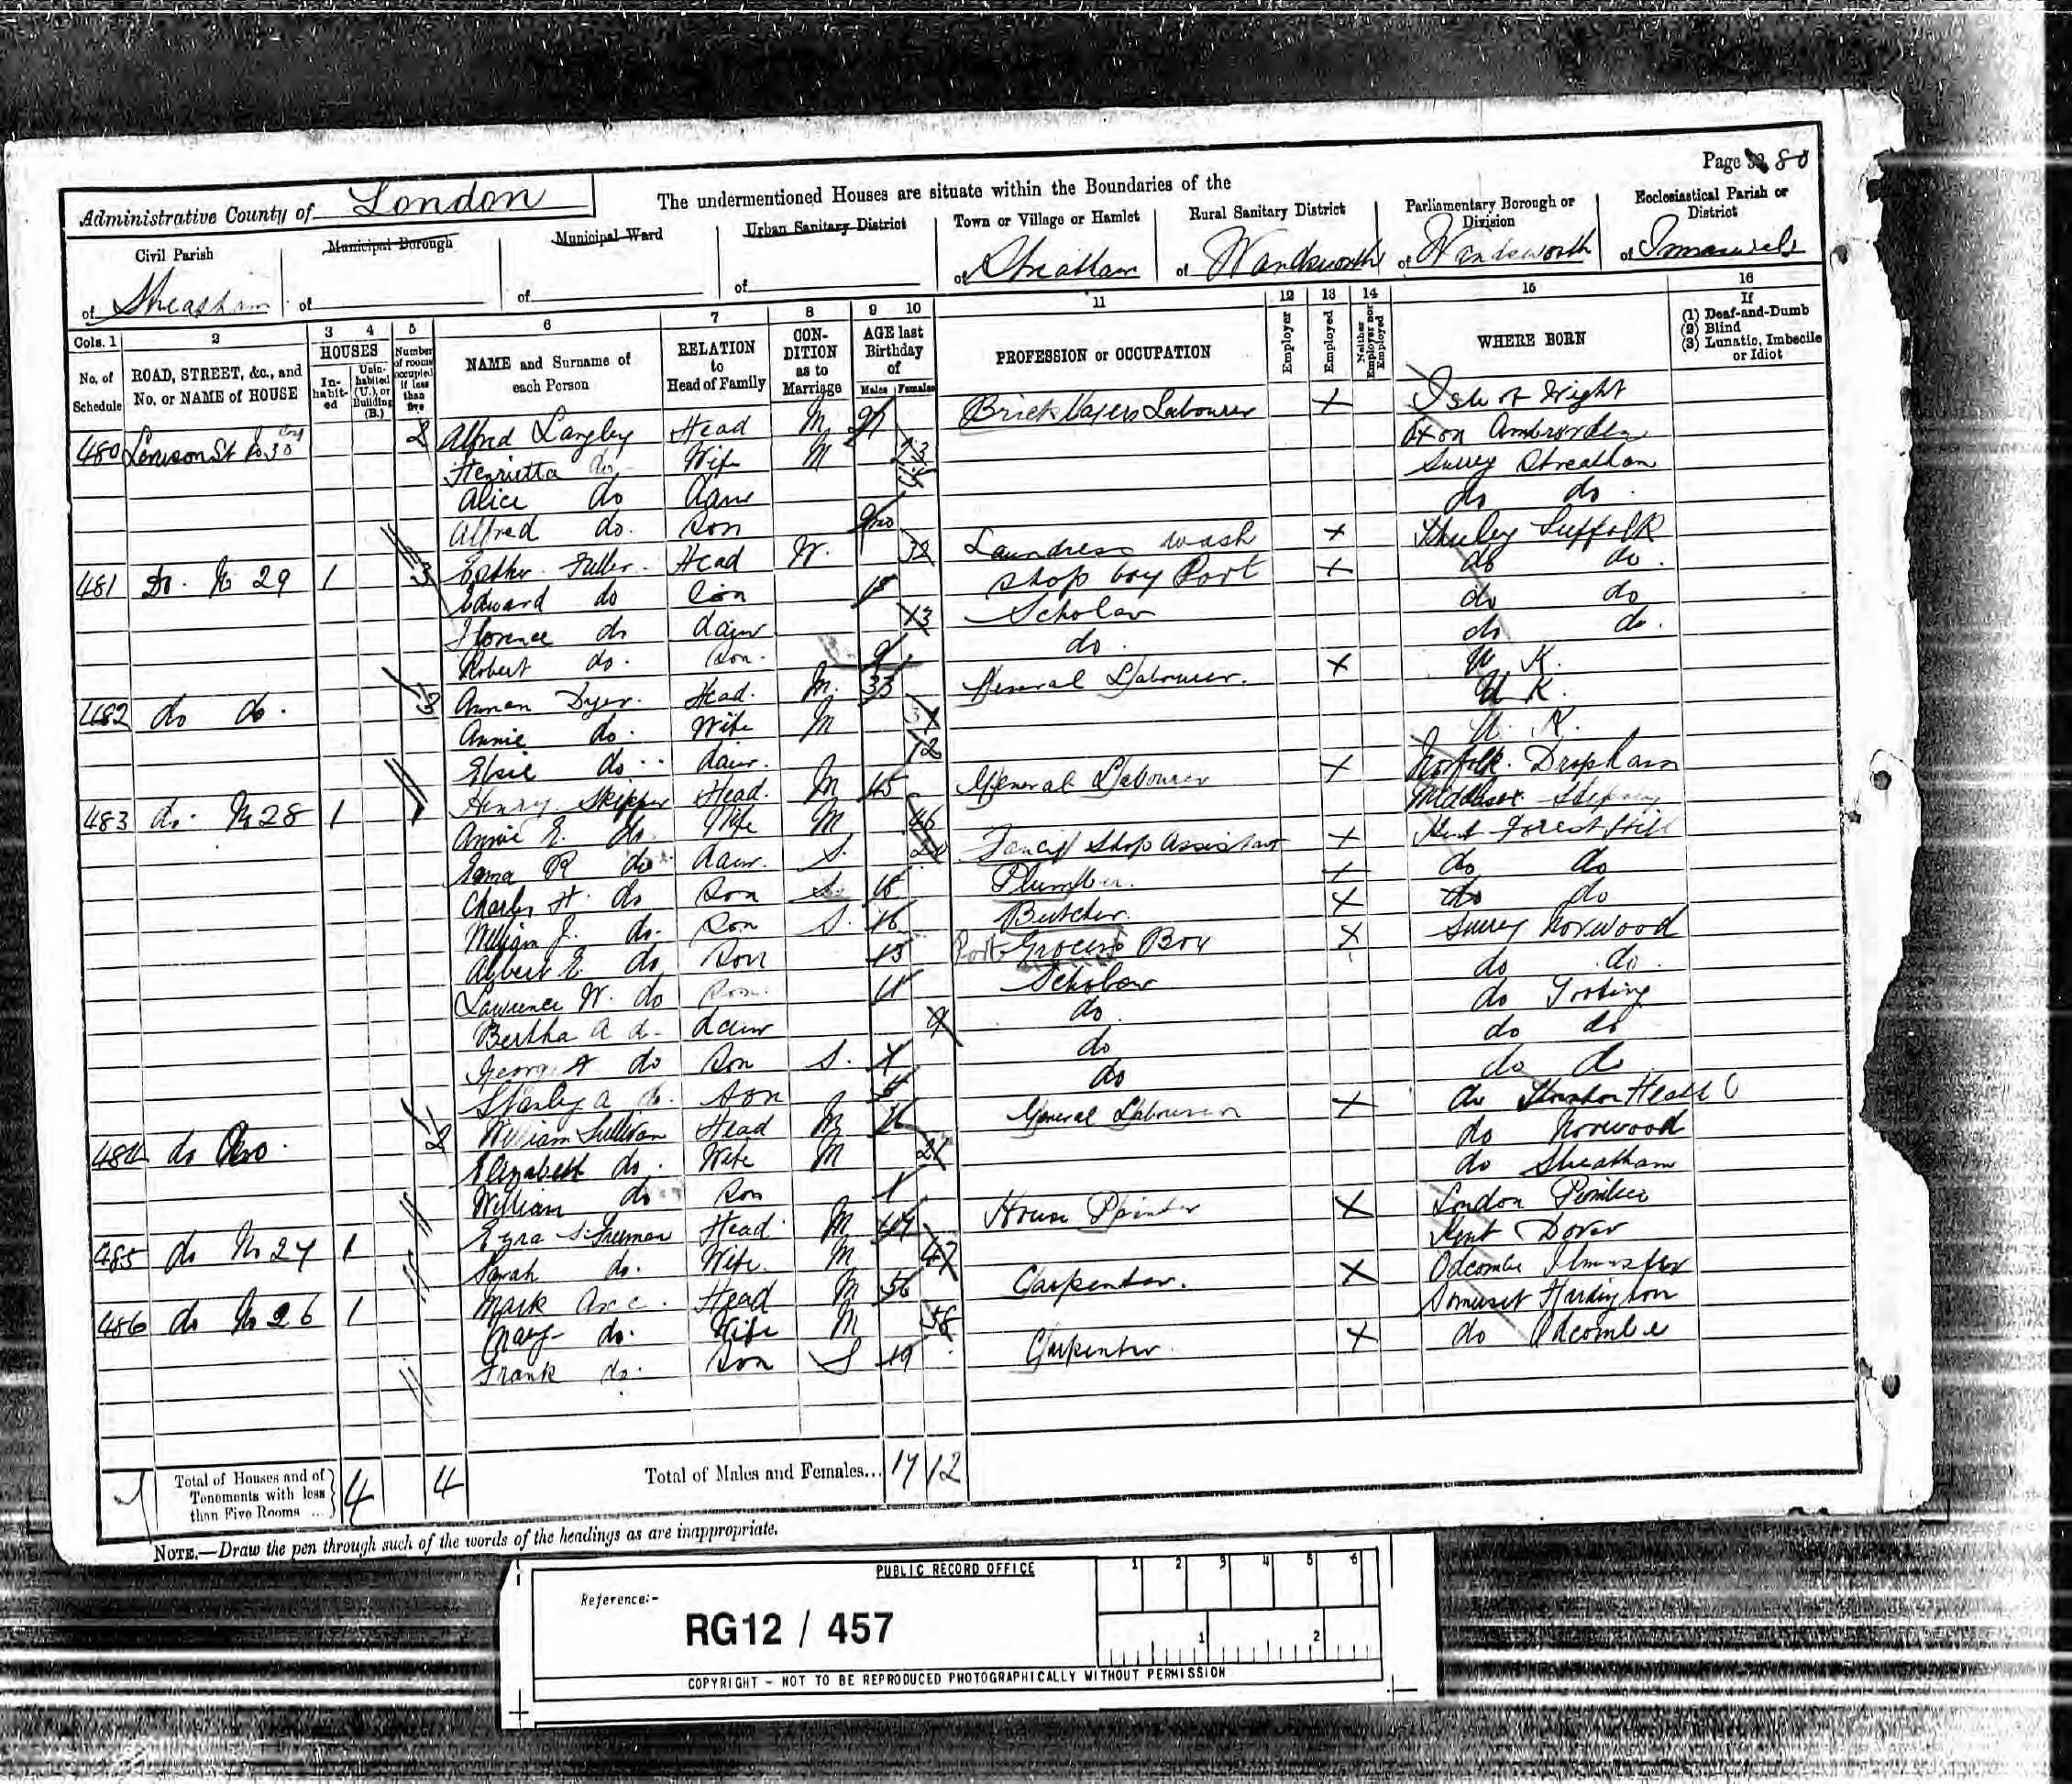 Page 80
Administrative County of London
The undermentioned Houses are situate within the Boundaries of the
Civil Parish of Streatham
Municipal Borough of
Municipal Ward of
Urban Sanitary District of
Town or Village or Hamlet of Streatham
Rural Sanitary District of Wandsworth
Parliamentary Borough or Division of Wandsworth
Ecclesiastical Parish or District of Immanuel
Cols. 1 2 3 4 5 6 7 8 9 10 11 12 13 14 15 16
No. of Schedule
ROAD, STREET, &c., and No. or NAME of HOUSE
HOUSES
In-habit-ed
Unin-habited (U.), or Building (B.)
Number of rooms occupied if less than five
NAME and Surname of each Person
RELATION to Head of Family
CON-DITION as to Marriage
AGE last Birthday of
Males Females
PROFESSION or OCCUPATION
Employer
Employed
Neither Employer nor Employed
WHERE BORN
If
(1) Deaf-and-Dumb
(2) Blind
(3) Lunatic, Imbecile or Idiot
480 St No 30 2 Alfred Langley Head M Bricklayers Labourer X Isle of Wight
Henrietta do Wife M 23 Oxon Ambrosden
Alice do Daur Surrey Streatham
Alfred do. Son do do
481 Do. No 29 1 3 Esther Fuller Head W. Laundress wash X Suffolk
Edward do Son Shop boy Port X do do.
Florence do daur 13 Scholar do do
Robert do. Son. 9 do. do do.
482 do do. 3 Dyer. Head. M. 33 General Labourer. X U. K.
Annie do. Wife M U K.
Elsie do daur. U. K.
483 do. No 28 1 Henry Skipper Head. M 45 General Labourer X Norfolk.
Annie E. do. Wife M 46 Middlesex Stepney
R do daur. S. Fancy Shop Assistant X Kent Forest Hill
Charles H. do Son S. 18 Plumber. X do do
William J. do. Son S. 16 Butcher. X do do
Albert E. do Son 13 Port Grocers Boy X Surrey Norwood
Lawrence W. do Son. 11 Scholar do do.
Bertha A do daur 9 do. do Tooting
George A do Son S. do do do
Stanley A do. Son do do do
484 do do. 2 William Sullivan Head M General Labourer X do Thornton Heath
Elizabeth do. Wife M 21 do Norwood
William do Son 1 do Streatham
485 do No 27 1 Ezra S. Freeman Head M House Painter X London Pimlico
Sarah do. Wife. M 47 Kent Dover
486 do No 26 1 Mark Head M 56 Carpenter. X Odcombe Ilminster
Mary do. Wife M 58 Somerset Hardington
Frank do. Son S 19 Carpenter X do Odcombe
Total of Houses and of Tenements with less than Five Rooms ... 4 4
Total of Males and Females... 17 12
NOTE.—Draw the pen through such of the words of the headings as are inappropriate.
PUBLIC RECORD OFFICE
1 2 3 4 5 6
Reference:-
RG12 / 457
1 2
COPYRIGHT - NOT TO BE REPRODUCED PHOTOGRAPHICALLY WITHOUT PERMISSION